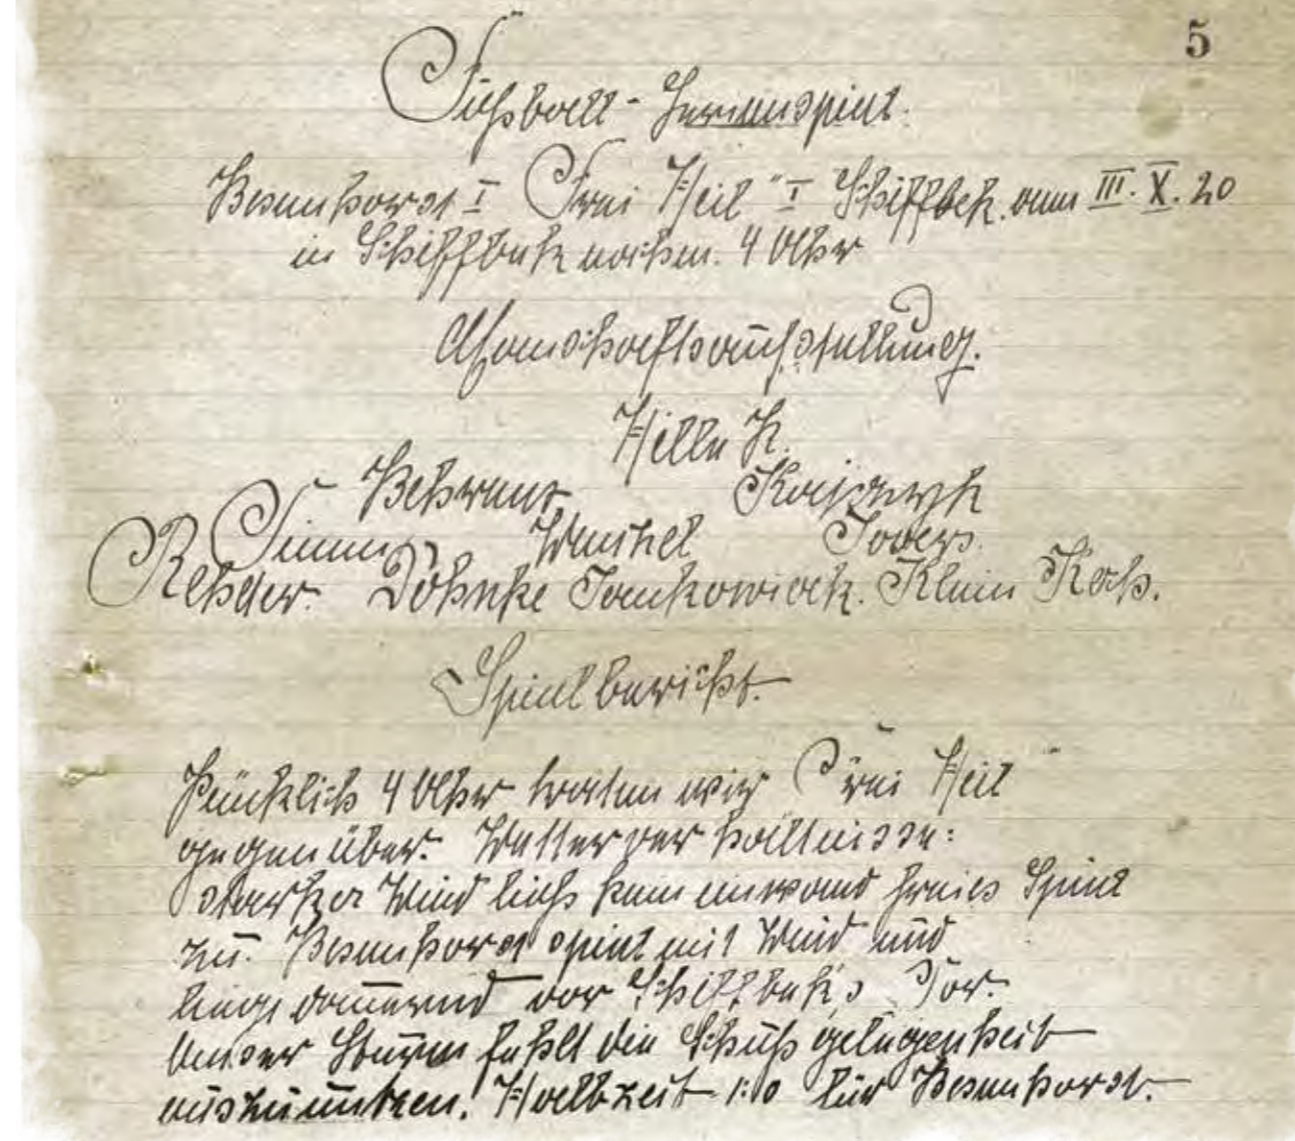 5
Fußball-Serienspiel.
Besenhorst I "Frei Heil" I Schiffbek. am III. X. 20
in Schiffbek nachm. 4 Uhr
Manschaftsaufstellung.
Hille K.
Behrens Kaiszyk
Timm Weichel Jovers.
Rehder. Döhnke Tomkowiack. Klein Koch.
Spielbericht.
Pünktlich 4 Uhr traten wir "Frei Heil"
gegenüber. Wetterverhältnisse:
starker Wind ließ kein einwand freies Spiel
zu. Besenhorst spielt mit Wind und
liegt dauernd vor Schiffbek's Tor.
Unser Sturm fehlt die Schuß gelegenheit
auszunutzen. Halbzeit 1:0 für Besenhorst.